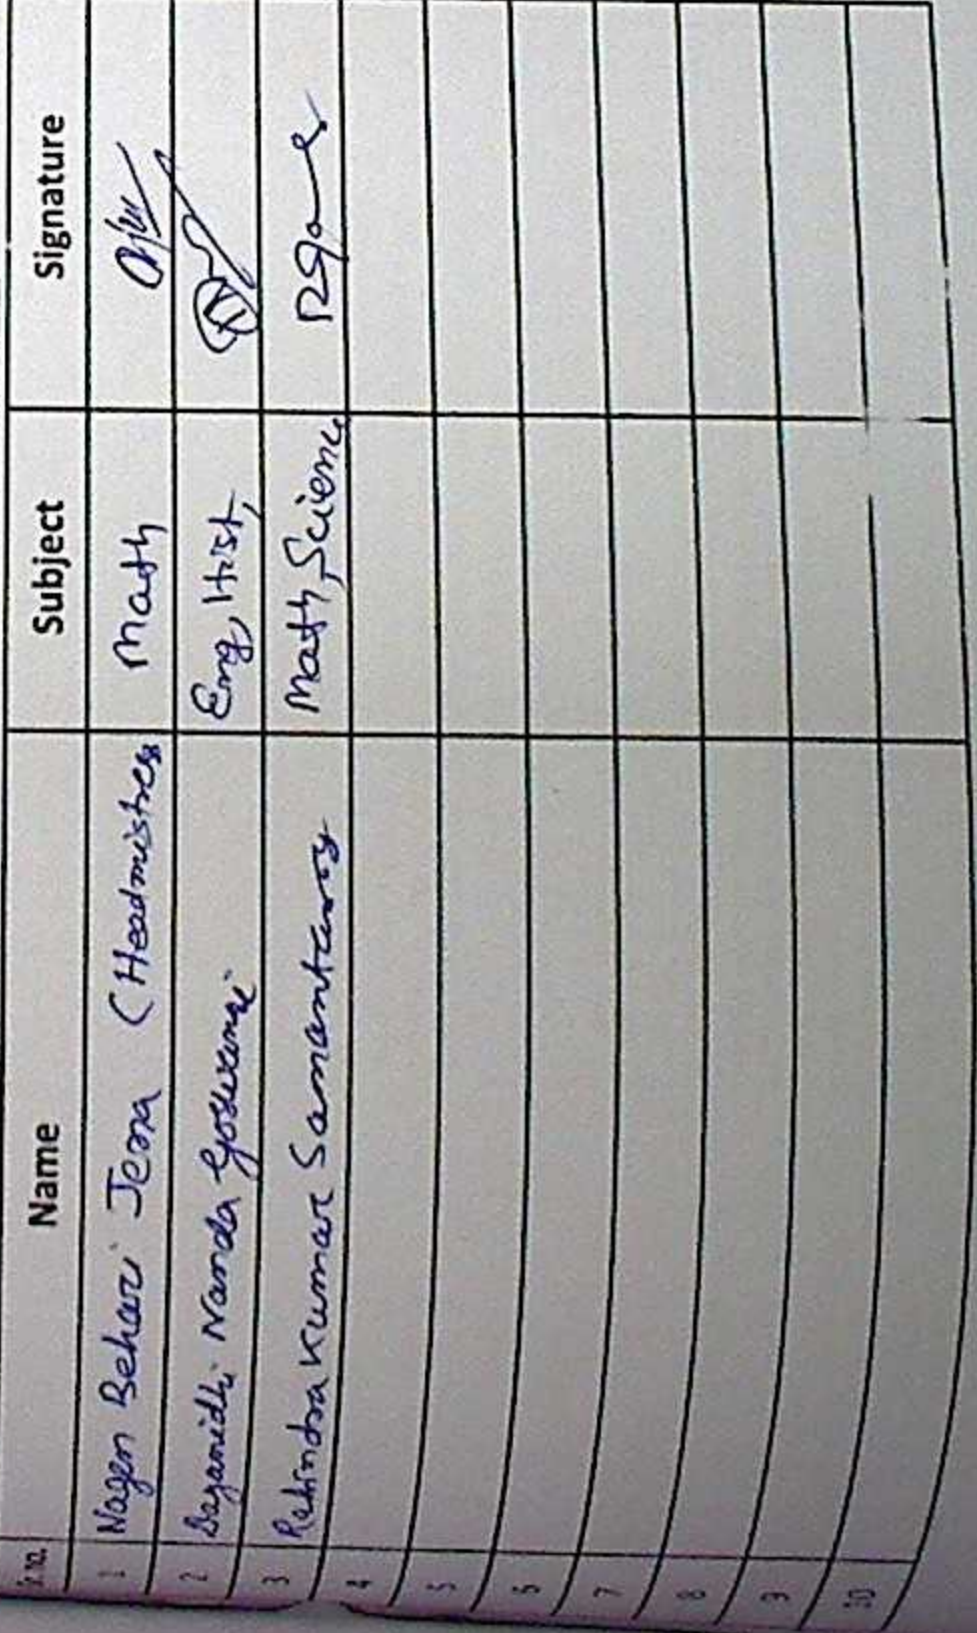 S.no. Name Subject Signature
1 Nagen Behari Jena (Headmistress Math
2 Dayanidhi Nanda Goswami Eng, Hist,
3 Rabindra Kumar Samantaray Math, Science
4
5
6
7
8
9
10